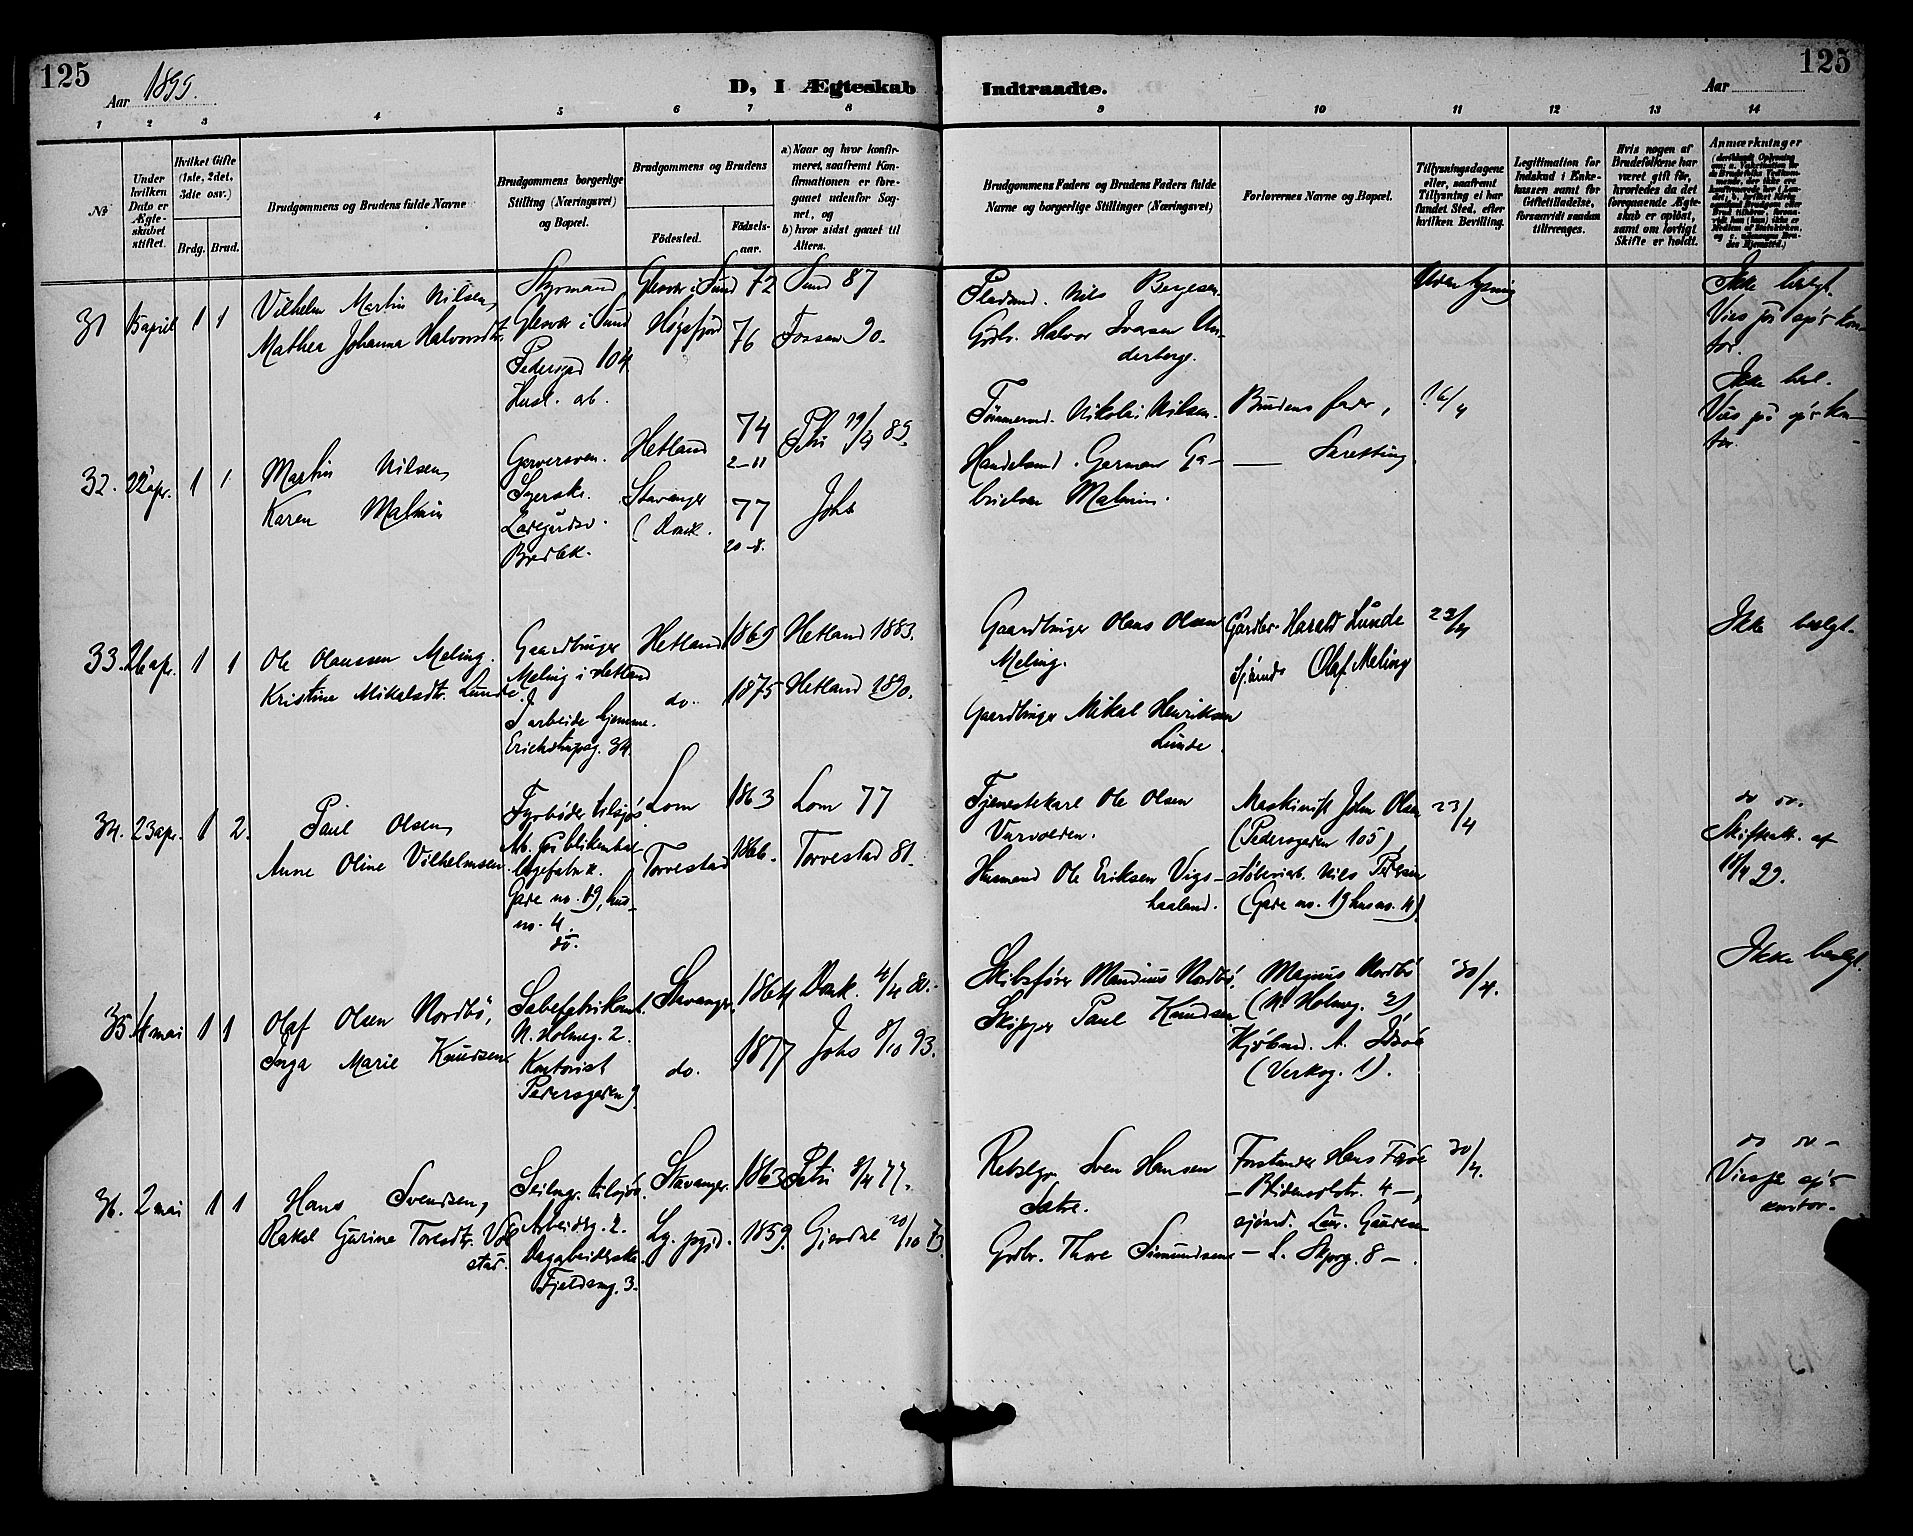 125
Aar 1899.
D, I Ægteskab Indtraadte.
Aar
125
1 2 3 4 5 6 7 8 9 10 11 12 13 14
No
Under hvilken Dato er Ægteskabet stiftet.
Hvilket Gifte (1ste, 2det, 3die osv.)
Brdg. Brud.
Brudgommens og Brudens fulde Navne
Brudgommens borgerlige Stilling (Næringsvei) og Bopæl.
Brudgommens og Brudens
Fødested.
Fødselsaar.
a) Naar og hvor konfirmeret, saafremt Konfirmationen er foregaaet udenfor Sognet, og
b) hvor sidst gaaet til Alters.
Brudgommens Faders og Brudens Faders fulde Navne og borgerlige Stillinger (Næringsvei)
Forlovernes Navne og Bopæl.
Tillysningsdagene eller, saafremt Tillysning ei har fundet Sted, efter hvilken Bevilling.
Legitimation for Indskud i Enkekassen samt for Giftetilladelse, forsaavidt saadan tiltrænges.
Hvis nogen af Brudefolkene har været gift før, hvorledes da det foregaaende Ægteskab er opløst, samt om lovligt Skifte er holdt.
Anmærkninger
31 15 april 1 1
Vilhelm Martin Nilsen,
Mathea Johanna Halvorsdt.
Styrmand
Glesvær i Sund
Pedersgd 104
Husl. arb.
Glesvær i Sund 72 Sund 87
Høgsfjord 76 Fossan 90.
Nils Bergesen
Grdbr. Halvor Iversen Underberge.
Uden lysning
Ikke besl.
Vies på sp's kontor.
32. 22 apr. 1 1
Martin Nilsen,
Karen Malmin
Garversven.
Syerske.
Bredbk.
Hetland 74 Petri 19/4 89.
2-11
Stavanger 77 Johs
(Domk. 20-8.
Tømmermd. Nikolai Nilsen.
Handelsmd. German Gabrielsen Malmin.
Brudens fader,
— Skretting.
16/4
Ikke besl.
Vies på sp's kontor.
33. 26 apr. 1 1
Ole Olaussen Meling.
Kristine Mikalsdt. Lunde.
Gaardbruger
Meling i Hetland
I arbeide hjemme.
Erichstrupsg. 34.
Hetland 1869 Hetland 1883.
do. 1875 Hetland 1890.
Gaardbruger Olaus Olsen
Meling.
Gaardbruger Mikal Henriksen
Lunde.
Gardbr. Harald Lunde
Sjømd. Olaf Meling
23/4
Ikke beslgt.
34. 23 apr. 1 2.
Paul Olsen,
Anne Oline Vilhelmsen.
Fyrbøder tilsjøs.
Gade no. 19, hus
no. 4.
do.
Lom 1863 Lom 77
Torvestad 1866. Torvestad 81.
Tjenestekarl Ole Olsen
Vurvolden.
Husmand Ole Eriksen Vigshaaland.
Maskinist John Olsen
(Pedersgaden 105)
støberiarb. Nils Pedersen
(Gade no. 19 hus no. 4)
23/4
do do.
Skifteatt. af
18/4 99.
35 4 mai 1 1
Olaf Olsen Nordbø,
Inga Marie Knudsen
Sæbefabrikant.
N. Holmeg. 2.
Kontorist
Pedersgaden 9
Stavanger. 1864 Domk. 4/4 80.
do. 1877 Johs 8/10 93.
Skibsfører Maudius Nordbø.
Skipper Paul Knudsen
Magnus Nordbø
(N. Holmeg. 2)
Kjøbmd. A. Idsøe
(Verksg. 1).
30/4.
Ikke beslgt.
36. 2 mai 1 1
Hans Svendsen,
Rakel Gurine Toresdtr. Vølstad.
Seilmgr. tilsjøs.
Arbeiderg. 2.
Dagarbeiderske
Fjeldsmg. 3.
Stavanger. 1863 Petri 8/4 77.
Ly. pgjd. 1859. Gjesdal 20/10 73.
Rebslgr. Sven Hansen
Sætre.
Grdbr. Thore Simundsen
Forstander Hans Forøe
sjømd. Laur. Gaudesen
— L. Skprg. 8 —.
30/4.
do do —
Vies på sp's
kontor.